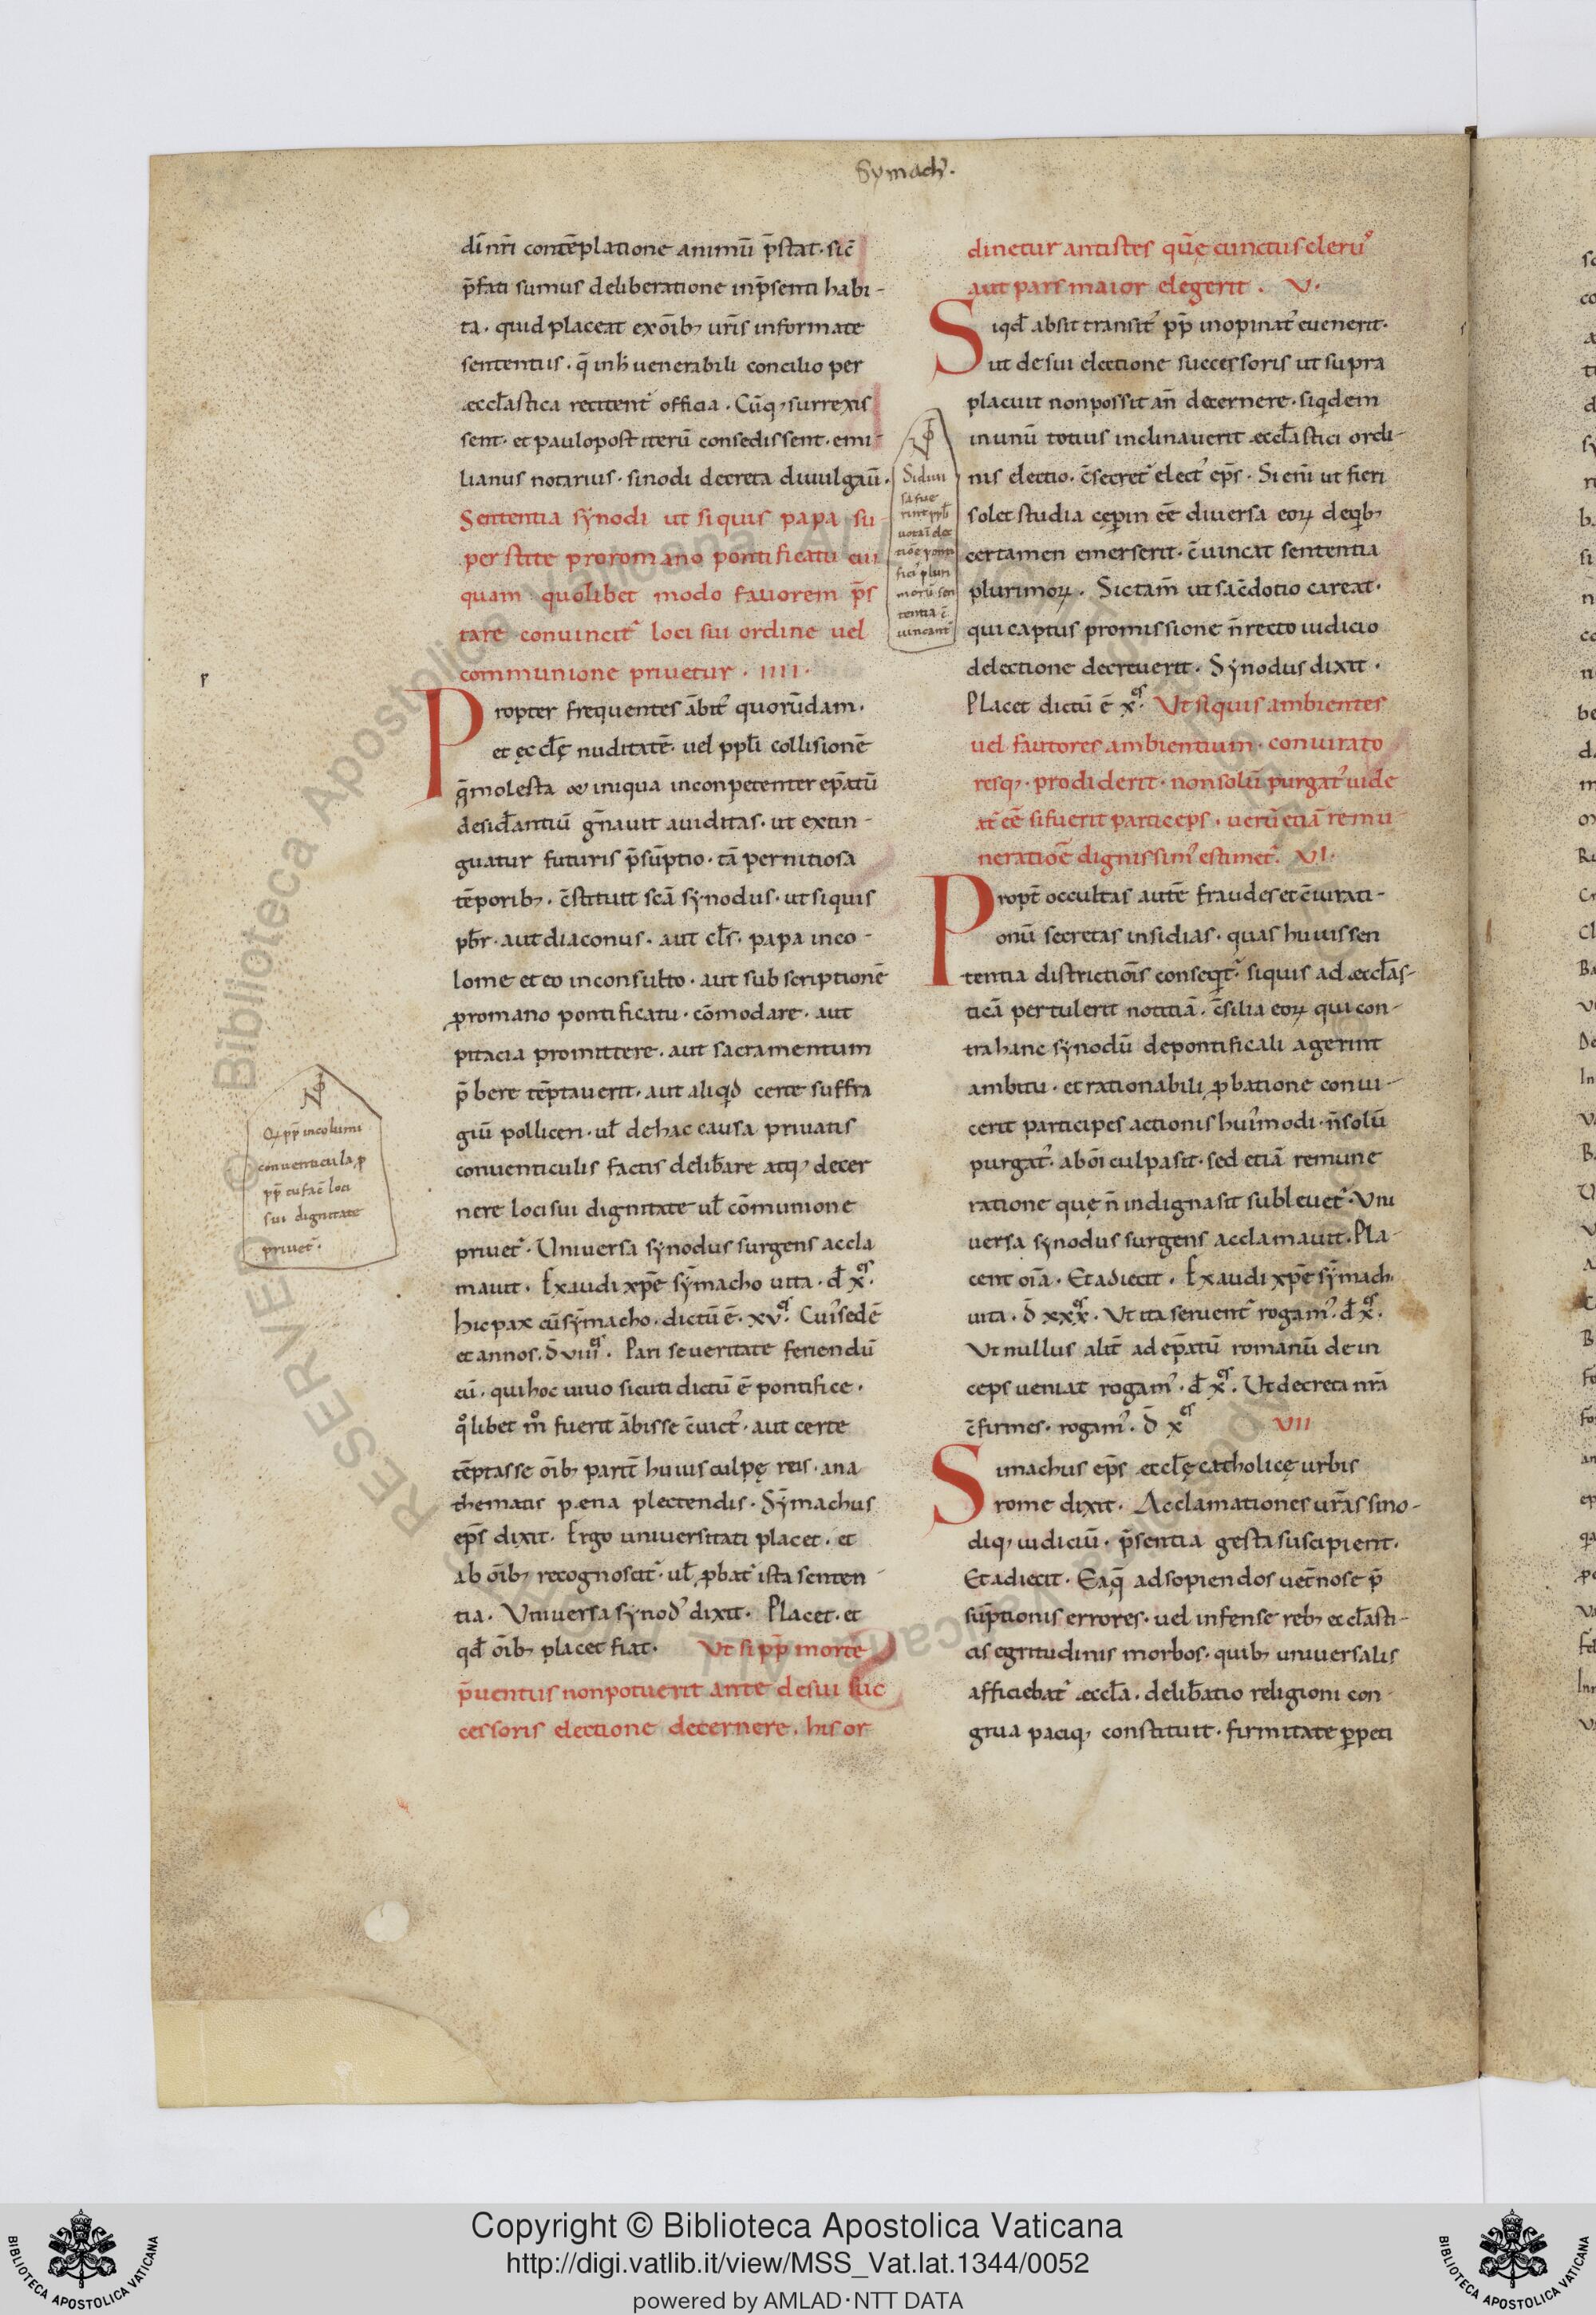 Symach̅.
di̅ nr̅i conte̅platione animu̅ p̅stat· sic̅
p̅fati sumus deliberatione inp̅senti habi-
ta· quid placeat exo̅ib; ur̅is informate
sententiis· q̅ inh̅ uenerabili concilio per
æccl̅astica recitent᷑ officia· Cu̅q; surrexis
sent· et paulopost iteru̅ consedissent· emi-
lianus notarius· sinodi decreta diuulgau̅·
Sententia synodi ut siquis papa su
perstite proromano pontificatu cui
quam quolibet modo fauorem p̅s
tare conuincit᷑ loci sui ordine uel
communione priuetur· IIII·
Propter frequentes a̅bit᷒ quoru̅dam·
et ęccl̅ę nuditate̅· uel ppl̅i collisione̅
q̅molesta & iniqua inconpetenter ep̅atu̅
desid̅antiu̅ g̅nauit auiditas· ut extin-
guatur futuris p̅su̅ptio· ta̅ pernitiosa
te̅porib;· c̅stituit sca̅ synodus· ut siquis
pb̅r· aut diaconus· aut cl̅s· papa inco-
lome et eo inconsulto· aut subscriptione̅
ꝓromano pontificatu· co̅modare· aut
pitacia promittere· aut sacramentum
p̅bere te̅ptauerit· aut aliqid certe suffra
giu̅ polliceri· ul̅ dehac causa priuatis
conuenticulis factis delib̅are atq; decer
nere loci sui dignitate ul̅ co̅munione
priuet᷑· Uniuersa synodus surgens accla
mauit· Exaudi xp̅e sy̅macho uita· d̅ x̊es·
hic pax cu̅sy̅macho· dictu̅ e̅· xv̊es· Cui᷒sede̅
et annos· d̅ viiii̊es· Pari seueritate feriendu̅
eu̅· qui hoc uiuo sicuti dictu̅ e̅ pontifice·
qͦlibet mͦ fuerit a̅bisse c̅uict᷒· aut certe
te̅ptasse o̅ib; parit̅ huius culpę reis· ana
thematis pæna plectendis· Sy̅machus
ep̅s dixit· Ergo uniuersitati placet· et
ab o̅ib; recognoscit᷑· ul̅ ꝓbat᷑ ista senten-
tia· Uniuersa synod᷒ dixit· Placet· et
qd̅ o̅ib; placet fiat· Ut si pp̅ morte
p̅uentus nonpotuerit ante desui suc
cessoris electione decernere· his or
N̅
Q̅ pp̅ incolumi
conuenticula ꝓ
loci
sui dignitate
priuet᷑·
Sidiui
sa fue
rint ppl̅
uota i̅ elec
tio̅e ponti
fici᷒ pluri
moru̅ sen
tentia c̅
uincant᷑
dinetur antistes que̅ cunctus cleru᷒
aut pars maior elegerit· V·
Siqd̅ absit transit᷒ pp̅ inopinat᷒ euenerit·
ut desui electione successoris ut supra
placuit nonpossit an̅ decernere· siqdem
inunu̅ totius inclinauerit æccl̅astici ordi-
nis electio· c̅secret᷑ elect᷒ ep̅s· Si eni̅ ut fieri
solet studia cęperin e̅e diuersa eoꝝ deqib;
certamen emerserit· c̅uincat sententia
plurimoꝝ· Sic tam̅ ut sac̅dotio careat·
qui captus promissione n̅ recto iudicio
delectione decreuerit· Synodus dixit·
Placet dictu̅ e̅ x̊es· Ut siquis ambientes
uel fautores ambientium· coniurato
resq; prodiderit· nonsolu̅ purgat᷒ uide
at᷑ e̅e sifuerit particeps· ueru̅ etia̅ remu-
neratio̅e dignissim᷒ estimet᷑· VI·
Propt̅ occultas aute̅ fraudes et c̅iurati-
onu̅ secretas insidias· quas huius sen
tentia districtio̅is conseqit᷑· siquis ad æccl̅as-
tica̅ pertulerit notitia̅· c̅silia eoꝝ qui con-
tra hanc synodu̅ depontificali agerint
ambitu· et rationabili ꝓbatione conui-
cerit participes actionis hui᷒modi· n̅solu̅
purgat᷒· abo̅i culpasit· sed etia̅ remune
ratione quę n̅ indignasit subleuet᷑· Uni
uersa synodus surgens acclamauit· Pla-
cent oi̅a· Et adiecit· Exaudi xp̅e sy̅mach·
uita· d̅ xxx̊es· Ut ita seruent᷑ rogam᷒· d̅ x̊es·
Ut nullus alit̅ ad ep̅atu̅ romanu̅ dein
ceps ueniat rogam᷒· d̅ x̊es· Ut decreta nr̅a
c̅firmes· rogam᷒· d̅ x̊es VII
Simachus ep̅s æccl̅ę catholicę urbis
rome dixit· Acclamationes ur̅as sino-
diq; iudiciu̅· p̅sentia gesta suscipient·
Et adiecit· Eaq̅ ad sopiendos uet̅nose p̅
su̅ptionis errores· uel infense reb; eccl̅asti-
cis egritudinis morbos· quib; uniuersalis
afficiebat᷑ æccl̅a· delib̅atio religioni con-
grua paciq; constituit· firmitate ꝑpeti
r
© Biblioteca Apostolica Vaticana
Copyright © Biblioteca Apostolica Vaticana
http://digi.vatlib.it/view/MSS_Vat.lat.1344/0052
powered by AMLAD·NTT DATA
BIBLIOTECA APOSTOLICA VATICANA
BIBLIOTECA APOSTOLICA VATICANA